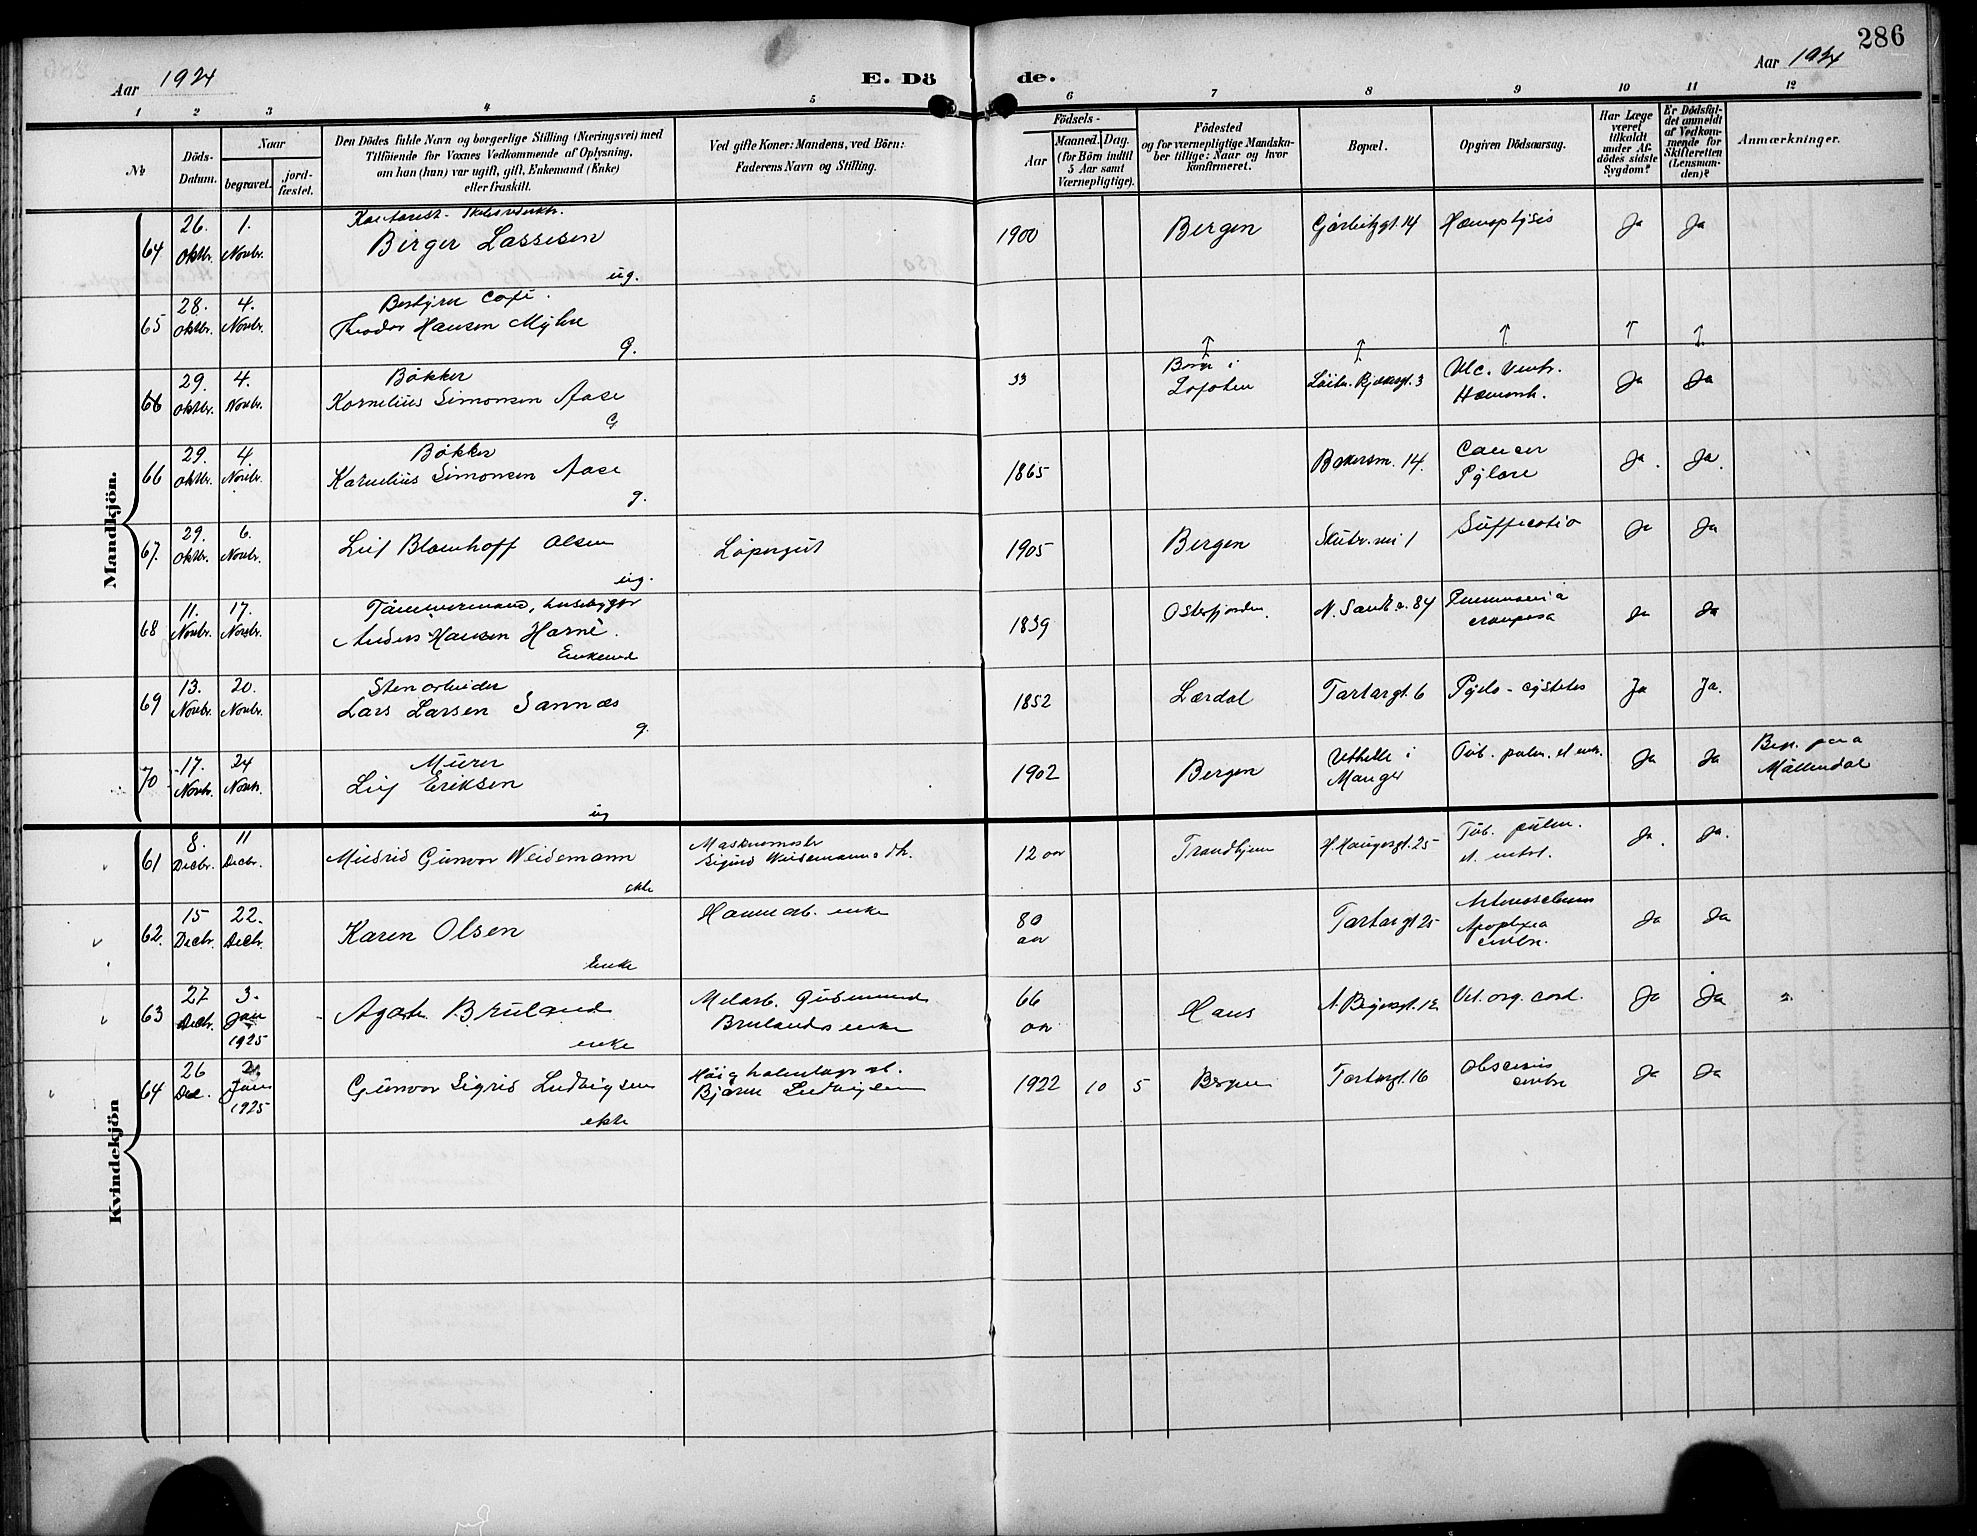 286
Aar 1924
E. Dö
de.
Aar 1924
1 2 3 4 5 6 7 8 9 10 11 12
No
Döds-
Datum.
Naar
begravet.
jord-
fæstet.
Den Dödes fulde Navn og borgerlige Stilling (Næringsvei) med
Tilföiende for Voxnes Vedkommende af Oplysning,
om han (hun) var ugift, gift, Enkemand (Enke)
eller fraskilt.
Ved gifte Koner: Mandens, ved Börn:
Faderens Navn og Stilling.
Födsels-
Aar
Maaned. Dag.
(for Börn indtil
5 Aar samt
Værnepligtige).
Födested
og for værnepligtige Mandska-
ber tillige: Naar og hvor
konfirmeret.
Bopæl.
Opgiven Dödsaarsag.
Har Læge
været
tilkaldt
under Af-
dödes sidste
Sygdom?
Er Dödsfal-
det anmeldt
af Vedkom-
mende for
Skifteretten
(Lensman-
den)?
Anmærkninger.
Mandkjön.
64 26. Oktbr. 1. Novbr.
Birger Lassesen
ug.
1900 Bergen Görbitzgt. 14 Hæmoptysis Ja Ja
65 28. Oktbr. 4. Novbr.
Bestyrer Café.
Theodor Hansen Myhre
g.
66 29. Oktbr. 4. Novbr.
Bökker
Kornelius Simonsen Aase
G
33 Lofoten 3 Ulc. ventr.
Hæmorrh. Ja Ja
66 29. Oktbr. 4 Novbr.
Bökker
Kornelius Simonsen Aase
g.
1865 14. Cancer
Pylore Ja. Ja.
67. 29. Oktbr. 6. Novbr.
Leif Blomhoff Olsen
ug.
Löpergut 1905 Bergen 1 Suffocatio Ja Ja
68 11. Novbr. 17. Novbr.
Tömmermand, husebygger
Anders Hansen Harne.
Enkemd
1839 Osterfjorden N. Sandv. 84 Pneumonia
crouposa Ja Ja
69 13. Novbr. 20. Novbr.
Stenarbeider
Lars Larsen Sannæs
g.
1852 Lærdal Tartargt. 6 Pyelo-cystetes Ja Ja.
70 17. Novbr. 24 Novbr.
Murer
Leif Eriksen
ug
1902 Bergen i
Manger Tub. pulm. et entr. Ja Ja Beg. paa
Möllendal
Kvindekjön
61 8. Decbr. 11 Decbr.
Gunvor Weidemann
ekte
Sigurd Weidemanns dtr.
12 aar Trondhjem H. Haugesgt. 25 Tub. pulm.
et entrt. Ja. Ja.
62. 15 Decbr. 22. Decbr.
Karen Olsen
Enke
Havnearb. enke
80
aar Tartargt 25
Apoplexia
cerebr. Ja Ja
63 27 Decbr. 3. Jan 1925
Agathe Bruland
enke
Melarb. Gudmund
Brulands enke
66
aar Haus 12 Vit. org. cord. Ja Ja
64 26 Dec. 2. Jan 1925
Gunvor Sigrid Ludvigsen
ekte
Bjarne Ludvigsen
1922 10 5 Bergen Tartargt. 16 Abscessus
cerebri Ja Ja